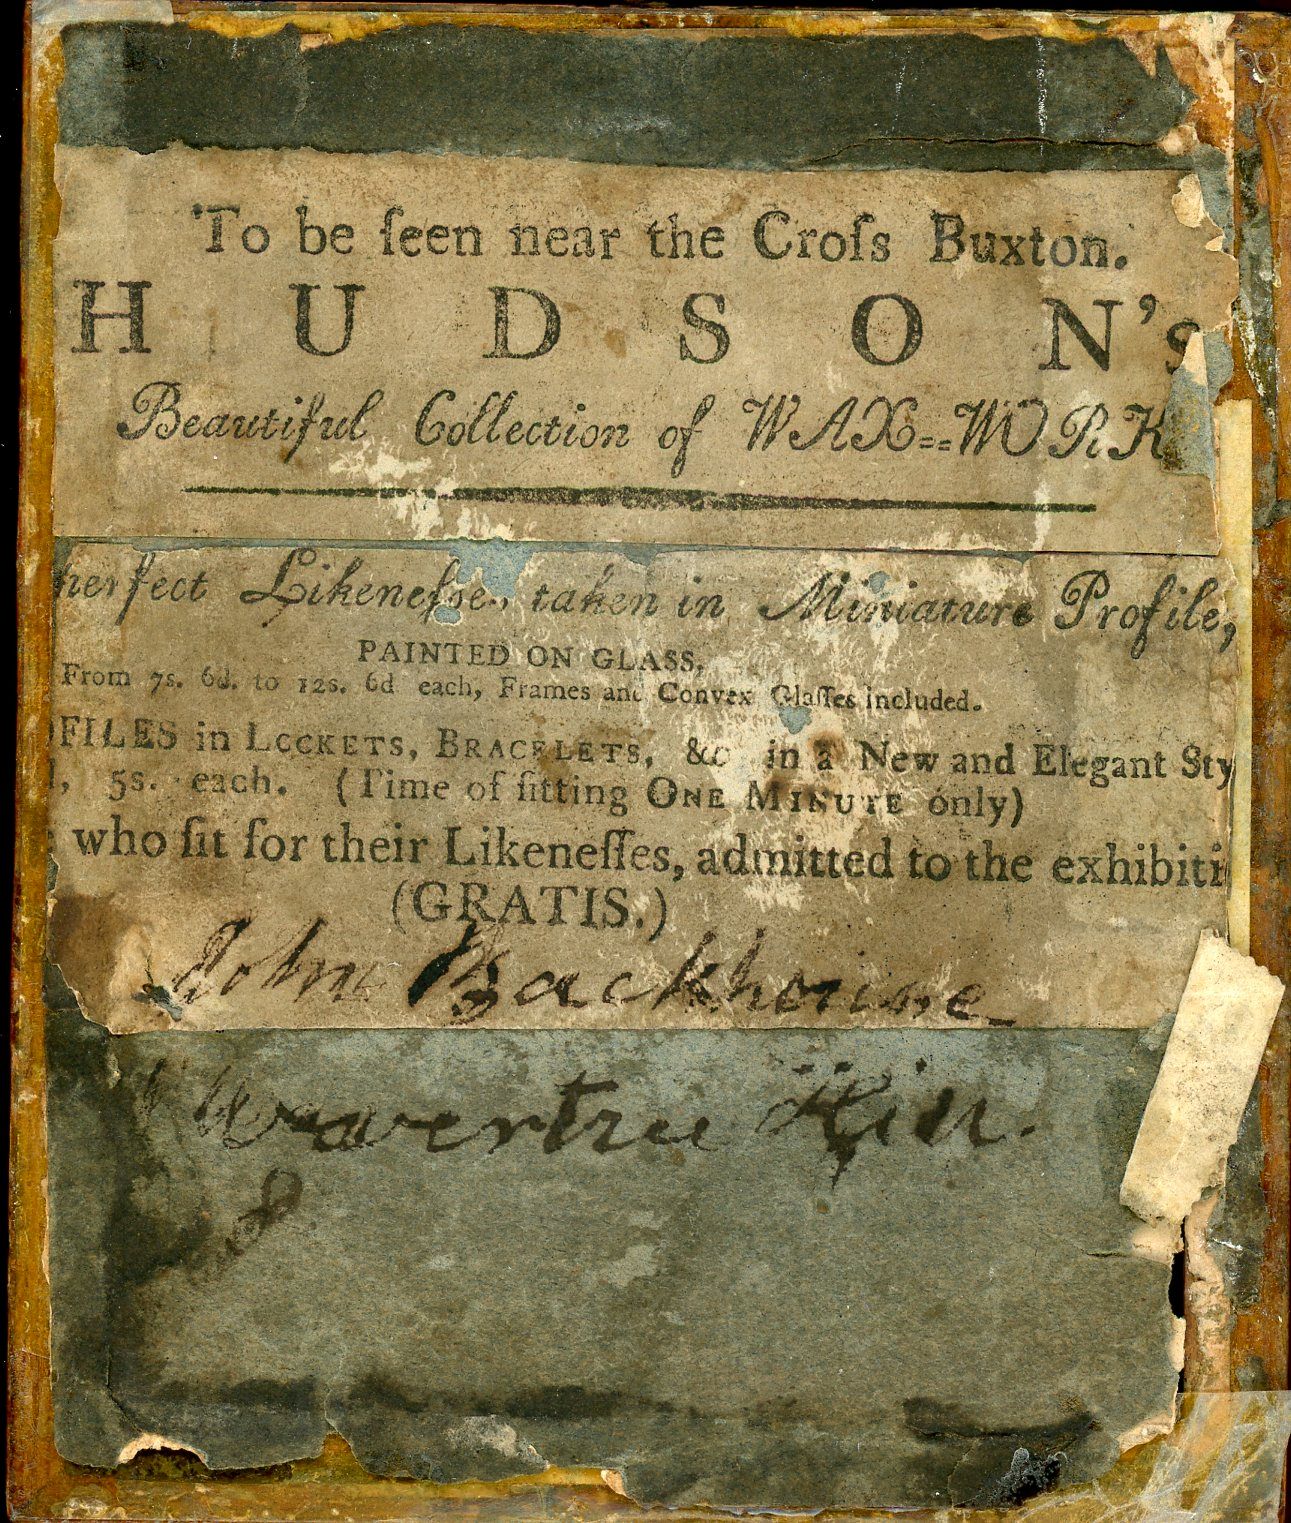 To be ſeen near the Croſs Buxton.
HUDSON's
Beautiful Collection of WAX==WORK
perfect Likeneſses, taken in Miniature Profile,
PAINTED ON GLASS,
From 7s. 6d. to 12s. 6d each, Frames and Convex Glaſſes included.
OFILES in LOCKETS, BRACELETS, &c in a New and Elegant Sty
5s. each. (Time of ſitting ONE MINUTE only)
who ſit for their Likeneſſes, admitted to the exhibiti
(GRATIS.)
John Backhouse
Wavertree Hill.